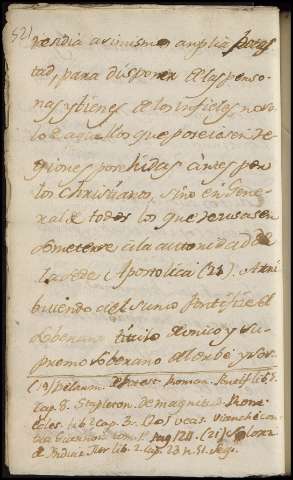 (52)
residia asimismo amplia potes
tad, para disponer de las perso-
nas y bienes de los infieles, no so
lo de aquellos que poseiasen Re-
giones posehidas antes por
los Christianos, sino en Gene-
ral de todos los que rehusasen
someterse á la autoridad de
la Sede Apostolica (21). Atri
buiendo al Sumo Pontifice el
soberano titulo de unico y su-
premo soberano del orbe, y
(19) de Potest. Roman.
cap. 8. Stapleton. de magnitud. Rom.
Eccles. lib. 2 cap. 3. (20)
tom. 1º pag. 124. (21) Solorz.
de Indiar. Jur. lib. 2. cap. 23 n. 51.